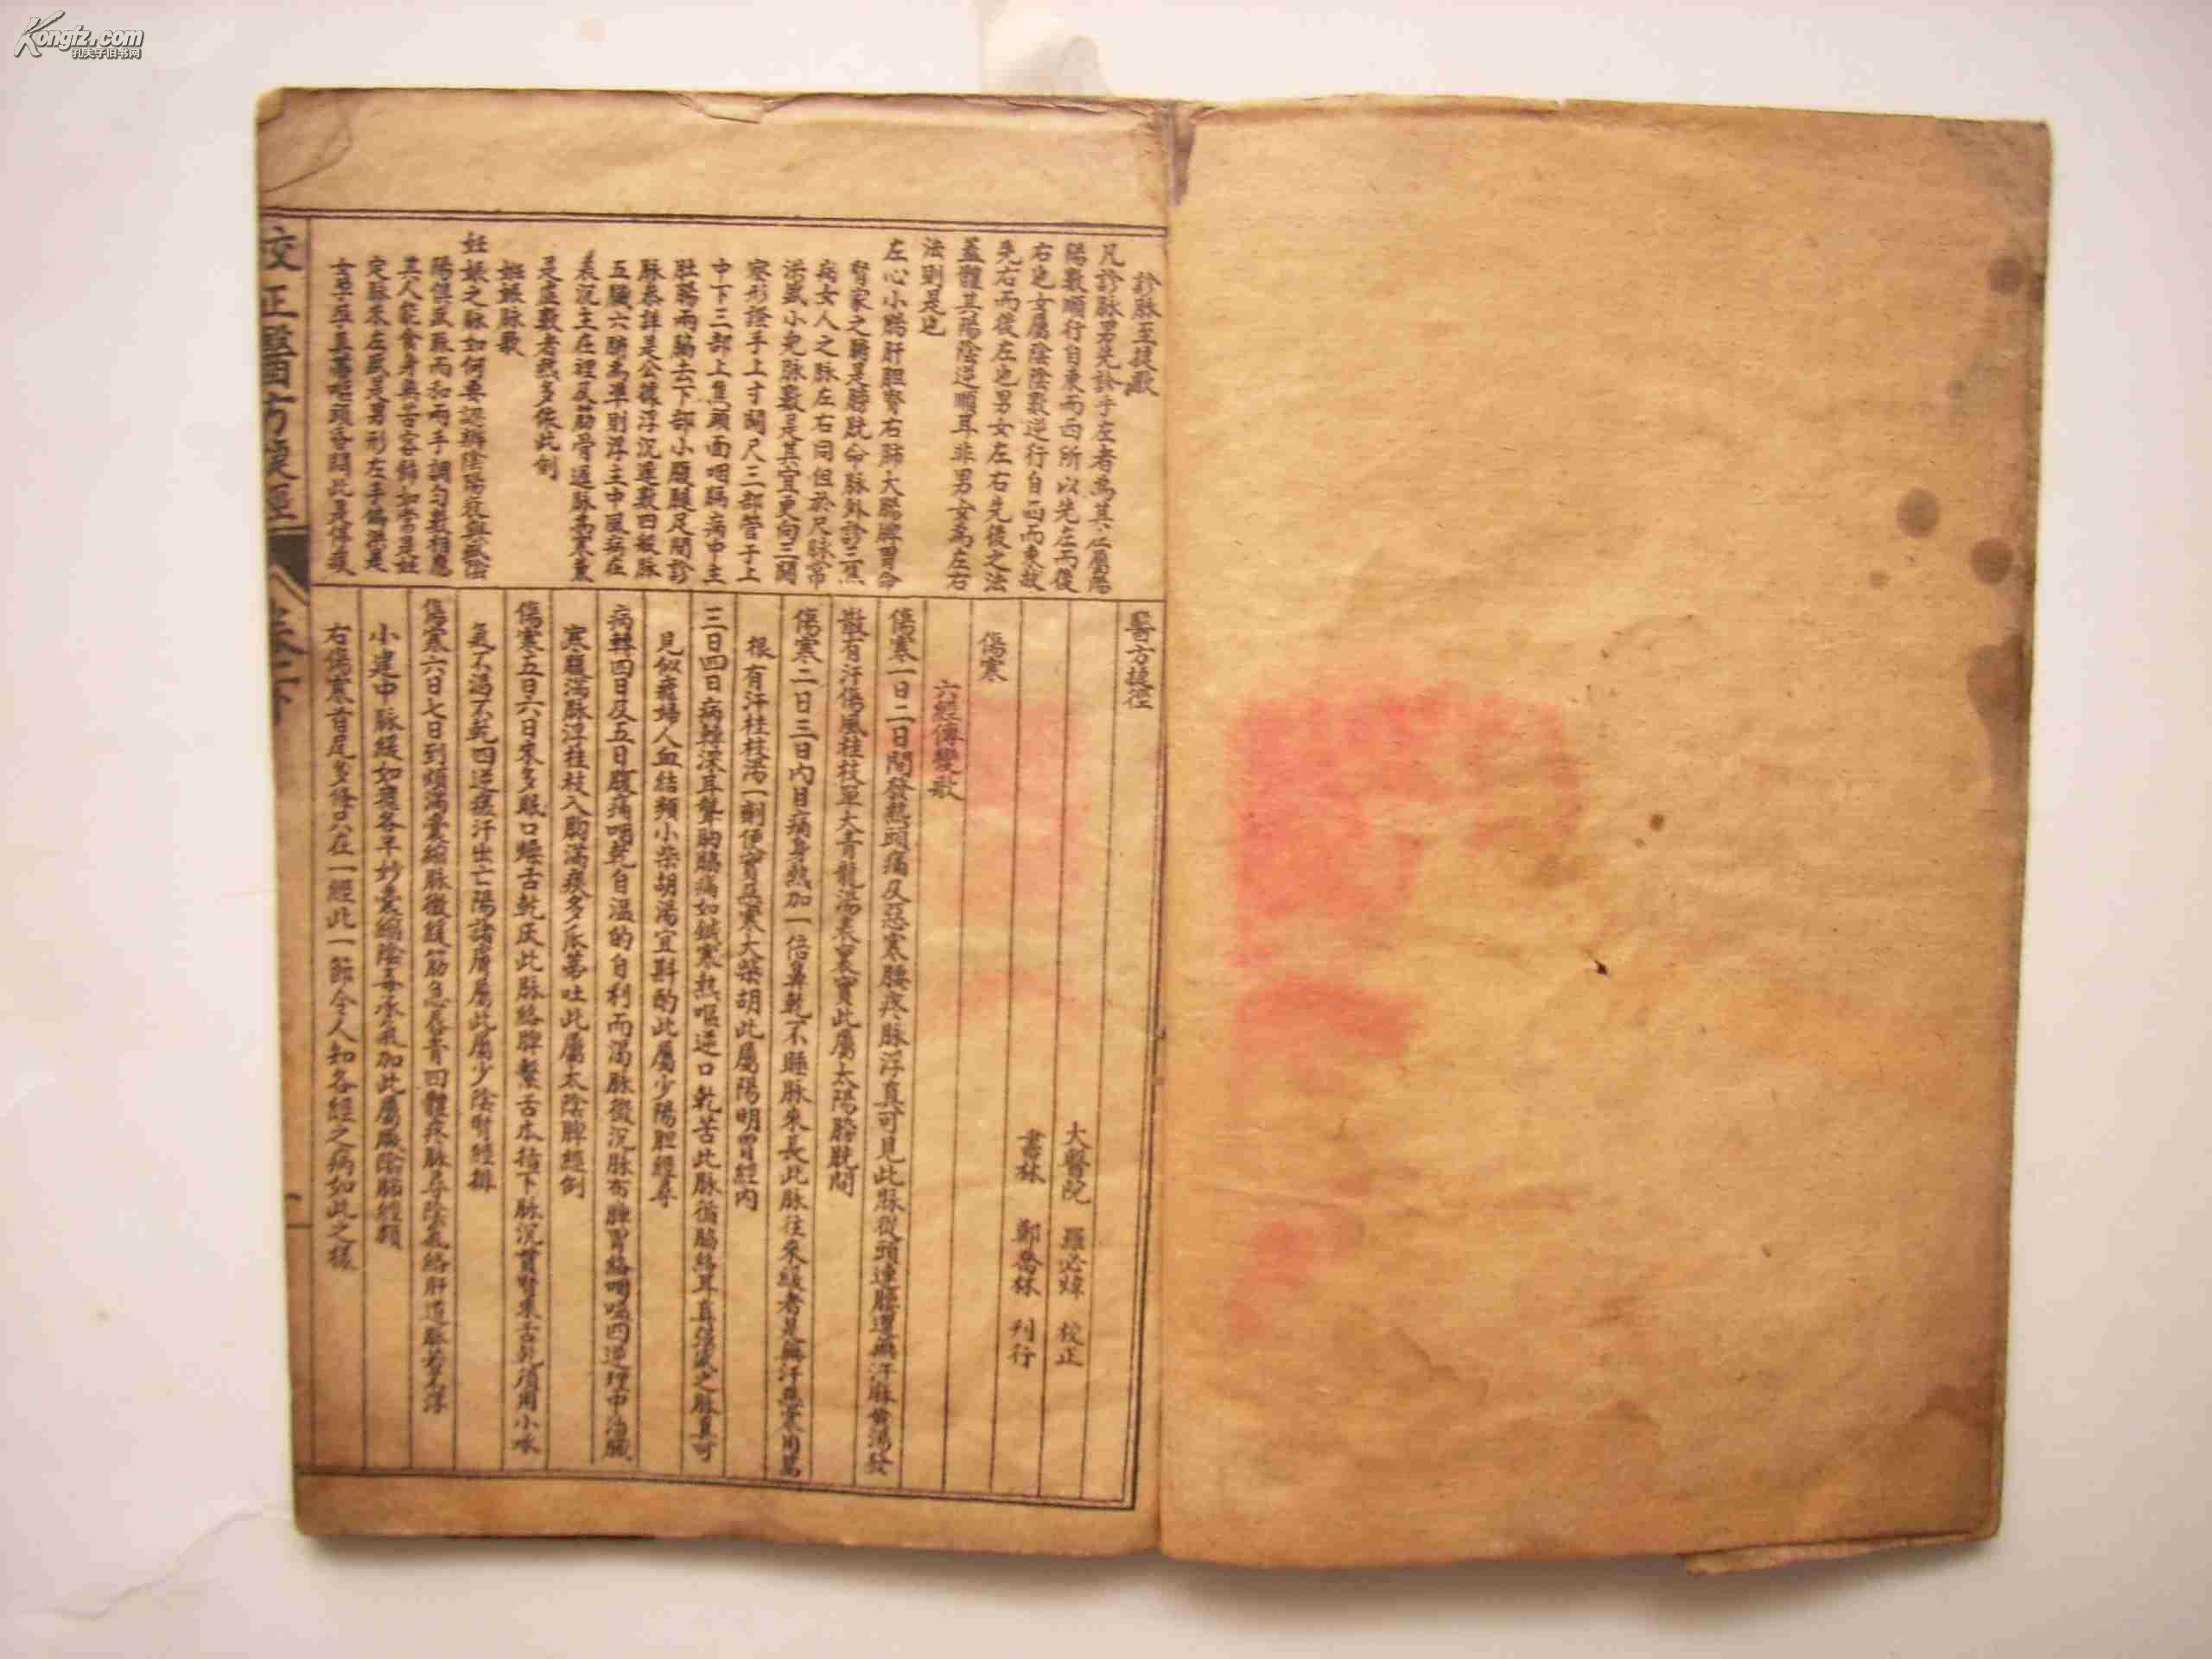 Kongfz.com
孔夫子旧书网
診脉至捷歌
凡診脉男先診手左者為其位屬陽
陽數順行自東而西所以先左而後
右也女屬陰陰數逆行自西而東故
先右而後左也男女左右先後之法
蓋體其陽陰逆順耳非男女為左右
法則是也
左心小腸肝胆腎右肺大腸脾胃命
腎家之腑是膀胱命脉外診三焦
病女人之脉左右同但於尺脉常
洪盛小兒脉數是其宜更向三關
察形證手上寸關尺三部管于上
中下三部上焦頭面咽膈病中主
肚腸兩脇去下部小腹腿足間診
脉恭詳是公據浮沉遲數四般脉
五臟六腑為準則浮主中風病在
表沉主在裡及筋骨遲脉為寒兼
是虛數者熱多依此例
妊娠脉歌
妊娠之脉如何要認辦陰陽衰與盛陰
陽俱盛
而和兩手調勻數相應
其人能食身無苦容飾如常是妊
定脉來左盛是男形左手偏洪是
醫方捷徑
大醫院 羅必煒 校正
書林 鄭喬林 刊行
傷寒
六經傳變歌
傷寒一日二日間發熱頭痛及惡寒腰疼脉浮真可見此脉從頭連腰還無汗麻黄湯發
散有汗傷風桂枝單大青龍湯表裏實此屬太陽膀胱間
傷寒二日三日內目痛身熱加一倍鼻乾不睡脉來長此脉往來緩者是無汗惡寒用葛
根有汗桂枝湯一劑便實無寒大柴胡此屬陽明胃經內
三日四日病轉深耳聾胸脇痛如鍼寒熱嘔逆口乾苦此脉循脇絡耳真弦盛之脉真可
見似瘧婦人血結頻小柴胡湯宜斟酌此屬少陽胆經尋
病轉四日及五日腹痛咽乾自溫的自利而渴脉微沉脉布脾胃絡咽嗌四逆理中治臟
寒腹滿脉浮桂枝入胸滿痰多瓜蒂吐此屬太陰脾經例
傷寒五日六日來多眠口燥舌乾灰此脉絡脾繫舌本積下脉沉貫腎來舌乾須用小承
氣不渴不乾四逆痰汗出亡陽諸膚屬此屬少陰腎經排
傷寒六日七日到煩滿囊縮脉微緩筋急唇青四體疼脉尋陰氣絡肝道脉若不浮
小建中脉緩如瘧各半妙囊縮陰毒承氣加此屬厥陰肺經類
右傷寒首尾多條只在一經此一節令人知各經之病如此之樣
校正醫方捷徑